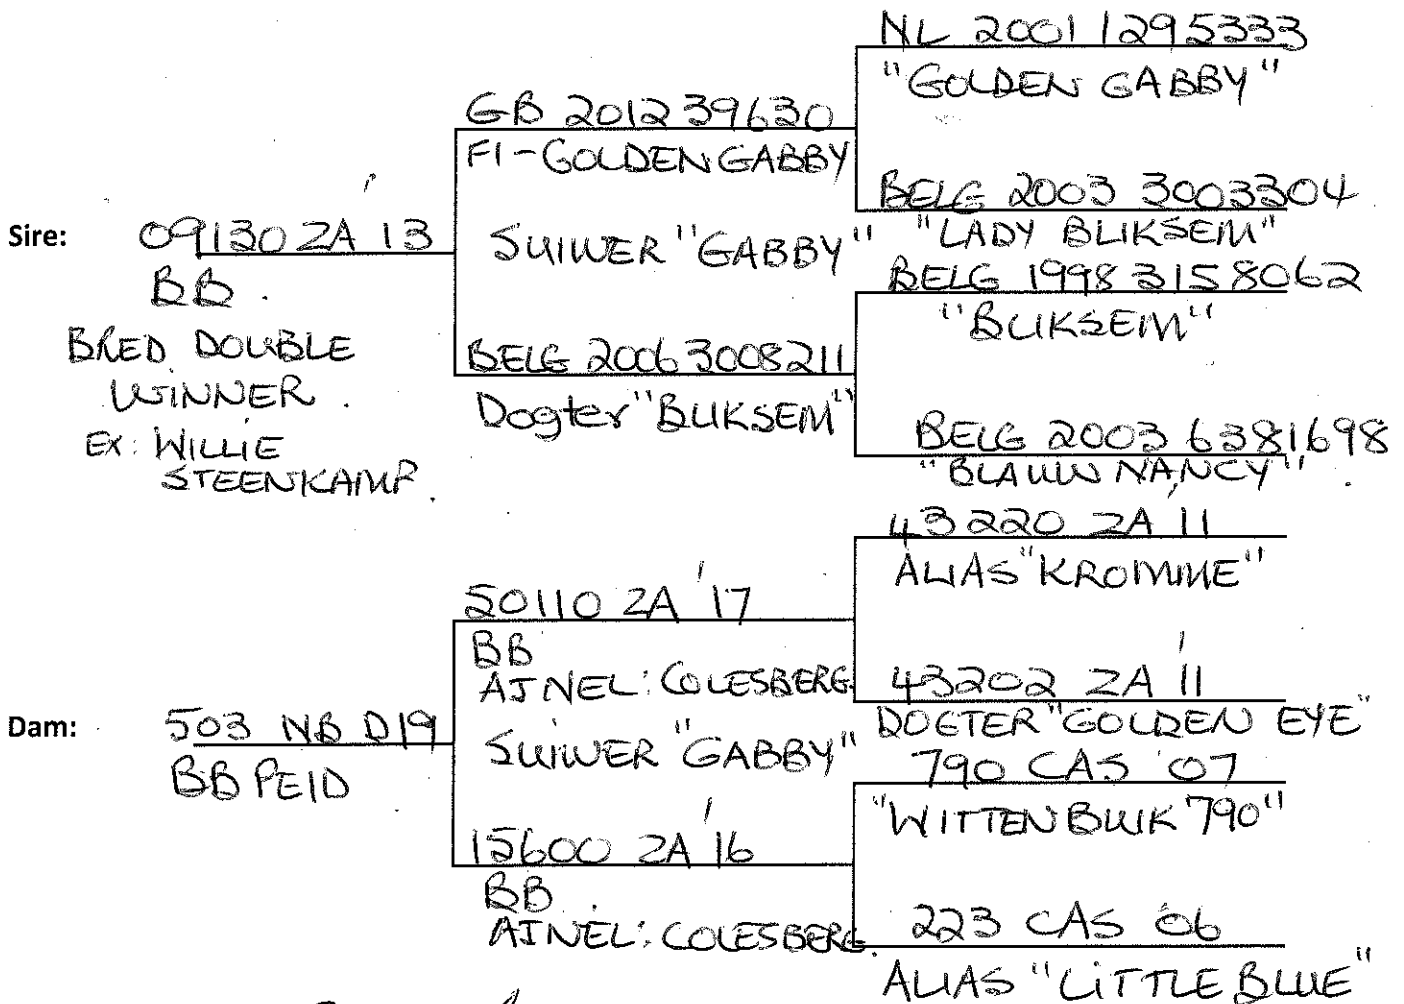 Sire:
09130 ZA '13
BB.
BRED DOUBLE
WINNER.
EX: WILLIE
STEENKAMP.
GB 2012 39630
F1-GOLDEN GABBY
SUIWER "GABBY"
BELG 2006 3008211
Dogter "BLIKSEM"
NL 2001 1295333
"GOLDEN GABBY"
BELG 2003 3003304
"LADY BLIKSEM"
BELG 1998 3158062
"BLIKSEM"
BELG 2003 6381698
"BLAUW NANCY".
Dam:
503 NB D19
BB PEID
50110 ZA '17
BB
AJNEL: COLESBERG.
SUIWER "GABBY"
15600 ZA '16
BB.
AJNEL: COLESBERG.
43220 ZA '11
ALIAS "KROMME"
43202 ZA '11
DOGTER "GOLDEN EYE"
790 CAS '07
"WITTENBUIK 790"
223 CAS '06
ALIAS "LITTLE BLUE"